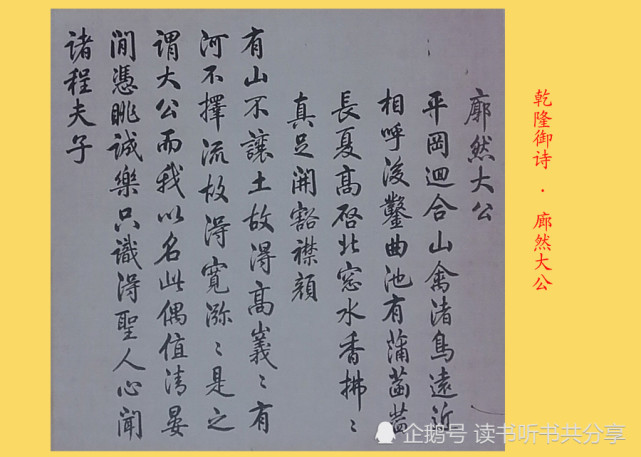 乾隆御诗 · 廊然大公
廓然大公
平岡迴合山禽渚鳥遠近
相呼後鑿曲池有蒲菡萏
長夏高啓北窓水香拂〻
真足開豁襟顏
有山不讓土故得高嶬〻有
河不擇流故得寬瀰〻是之
謂大公而我以名此偶值清晏
閒憑眺誠樂只識得聖人心聞
諸程夫子
企鹅号 读书听书共分享